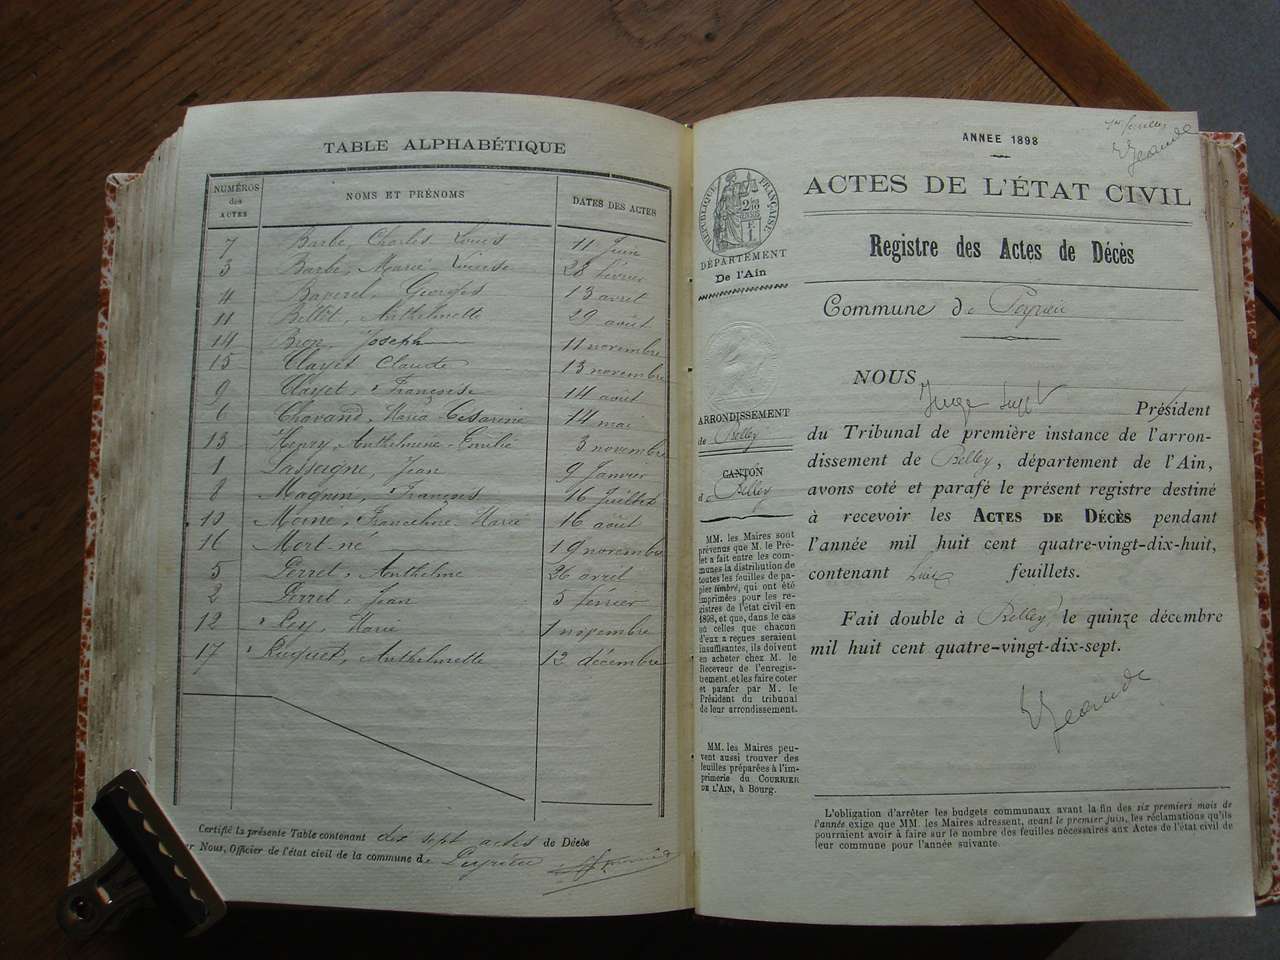 TABLE ALPHABÉTIQUE
NUMÉROS des ACTES NOMS ET PRÉNOMS DATES DES ACTES
7 Barbe, Charles Louis 11 Juin
3 Barbe, Marie Louise 28 février
4 Baverel, Georges 13 avril
11 Bellet, Anthelmette 29 août
14 Joseph 11 novembre
15 Clayet Claude 13 novembre
9 Clayet, Françoise 14 août
6 Chavand, Maria Césarine 14 mai
13 Henry, Anthelmine Emilie 3 novembre
1 Lasseigne, Jean 9 Janvier
8 Magnin, François 16 Juillet
10 Franceline Marie 16 août
16 Mort-né 19 novembre
5 Perret, Anthelme 26 avril
2 Perret, Jean 5 février
12 Rey, Marie 1 novembre
17 Anthelmette 12 décembre
Certifié la présente Table contenant dix sept actes de Décès
Nous, Officier de l'état civil de la commune de Peyrieu
ANNEE 1898
ACTES DE L'ÉTAT CIVIL
RÉPUBLIQUE FRANÇAISE
DÉPARTEMENT
De l'Ain
Registre des Actes de Décès
Commune de Peyrieu
ARRONDISSEMENT
de Belley
CANTON
d Belley
MM. les Maires sont
prévenus que M. le Pré-
let a fait entre les com-
munes la distribution de
toutes les feuilles de pa-
pier timbré, qui ont été
imprimées pour les re-
gistres de l'état civil en
1898, et que, dans le cas
où celles que chacun
d'eux a reçues seraient
insuffisantes, ils doivent
en acheter chez M. le
Receveur de l'enregis-
trement et les faire coter
et parafer par M. le
Président du tribunal
de leur arrondissement.
MM. les Maires peu-
vent aussi trouver des
feuilles préparées à l'im-
primerie du COURRIER
DE L'AIN, à Bourg.
NOUS Juge suppt
Président
du Tribunal de première instance de l'arron-
dissement de Belley, département de l'Ain,
avons coté et parafé le présent registre destiné
à recevoir les ACTES DE DÉCÈS pendant
l'année mil huit cent quatre-vingt-dix-huit,
contenant feuillets.
Fait double à Belley, le quinze décembre
mil huit cent quatre-vingt-dix-sept.
L'obligation d'arrêter les budgets communaux avant la fin des six premiers mois de
l'année exige que MM. les Maires adressent, avant le premier juin, les réclamations qu'ils
pourraient avoir à faire sur le nombre des feuilles nécessaires aux Actes de l'état civil de
leur commune pour l'année suivante.